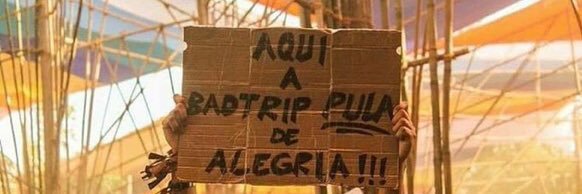 AQUI
A
BADTRIP PULA
DE
ALEGRIA!!!